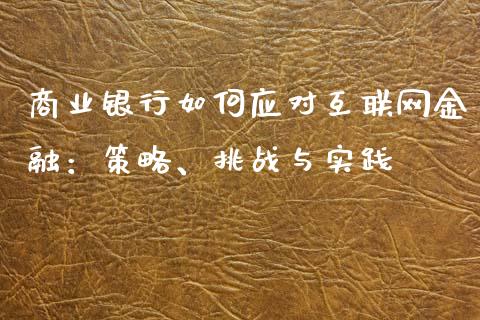 商业银行如何应对互联网金
融：策略、挑战与实践